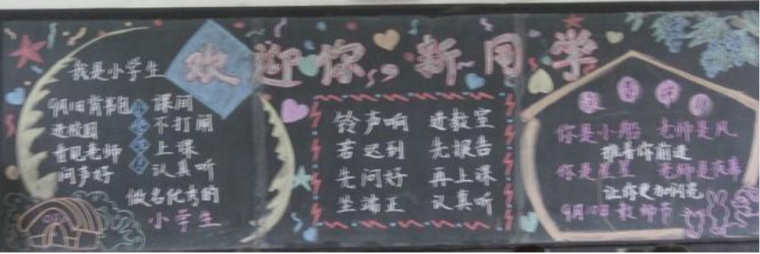 欢迎你,新同学
我是小学生
9月1日背书包
进校园
看见老师
问声好
课间
不打闹
上课
认真听
做名优秀的
小学生
铃声响 进教室
若迟到 先报告
先问好 再上课
坐端正 认真听
你是小船 老师是风
推着你前进
你是星星 老师是夜幕
让你更加闪亮
9月10日教师节